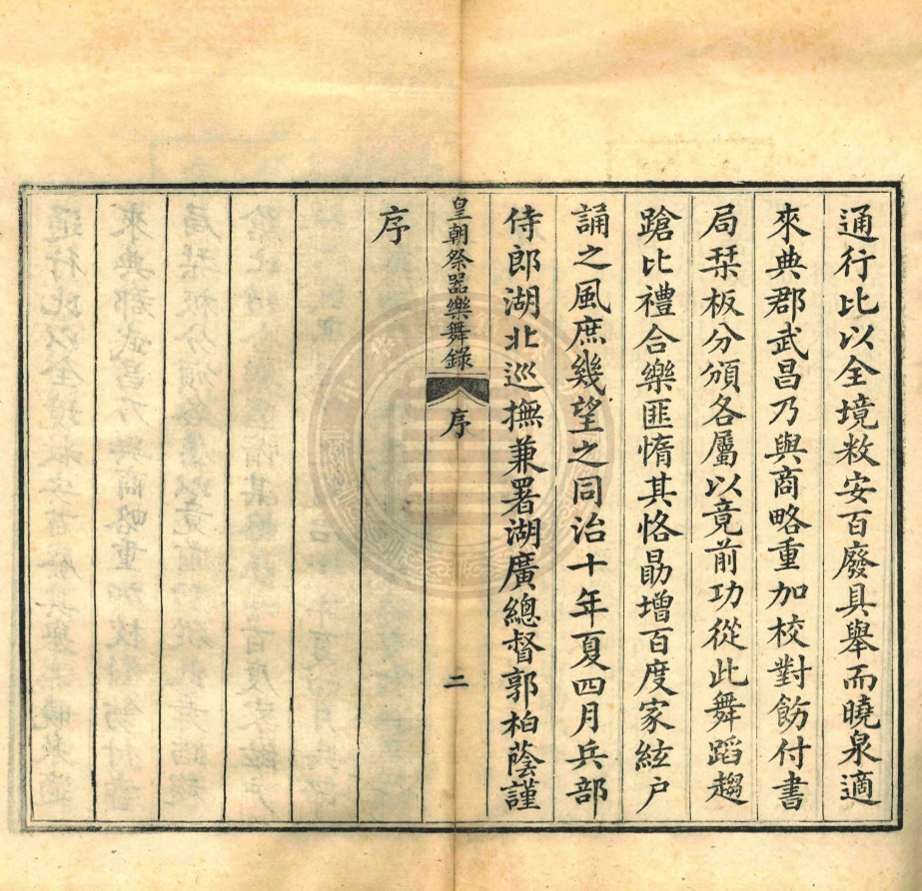 通行比以全境敉安百廢具舉而曉泉適
來典郡武昌乃與商略重加校對飭付書
局栞板分頒各屬以竟前功從此舞蹈趨
蹌比禮合樂匪惰其恪勗增百度家絃戶
誦之風庶幾望之同治十年夏四月兵部
侍郎湖北巡撫兼署湖廣總督郭柏蔭謹
皇朝祭器樂舞錄 序 二
序